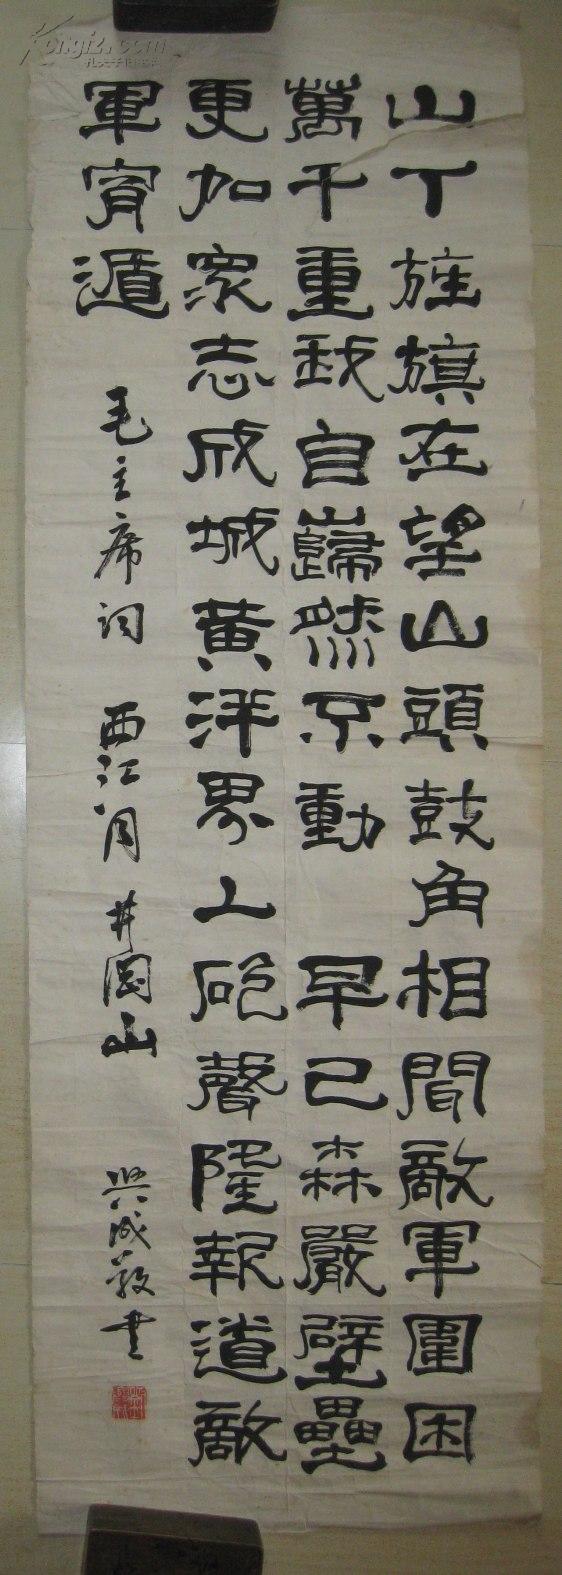 山下旌旗在望山頭鼓角相聞敵軍圍困
萬千重我自巋然不動 早已森嚴壁壘
更加衆志成城黄洋界上砲聲隆報道敵
軍宵遁
毛主席词 西江月 井岡山
成 书